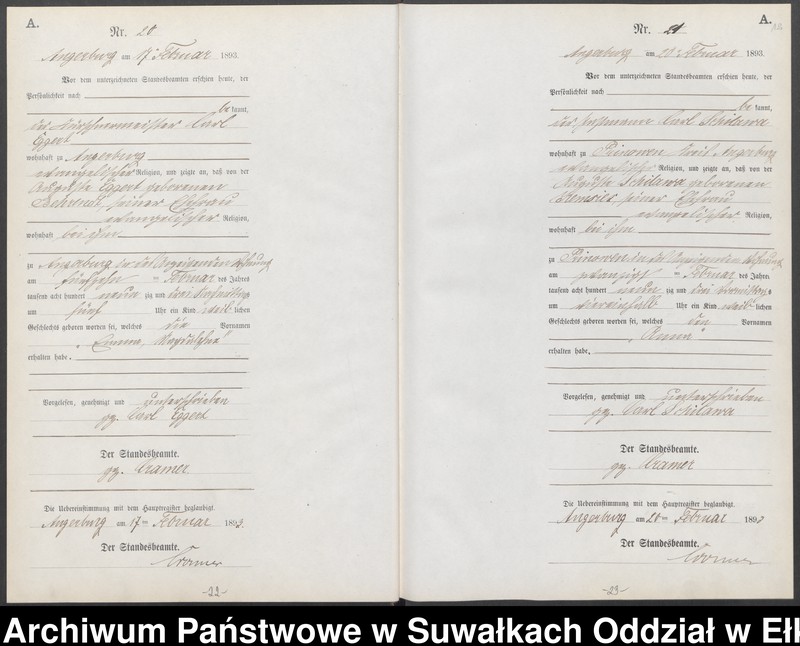 A.
Nr. 20
Angerburg am 17. Februar 1893.
Vor dem unterzeichneten Standesbeamten erschien heute, der
Persönlichkeit nach
be kannt,
der Kürschnermeister Carl
Eggert
wohnhaft zu Angerburg
evangelischer Religion, und zeigte an, daß von der
Auguste Eggert geborenen
seiner Ehefrau
evangelischer Religion,
wohnhaft bei ihm
zu Angerburg in der Wohnung
am fünfzehn ten Februar des Jahres
tausend acht hundert neun zig und drei
um fünf Uhr ein Kind weib lichen
Geschlechts geboren worden sei, welches die Vornamen
„Emma,
erhalten habe.
Vorgelesen, genehmigt und unterschrieben
gz. Carl Eggert
Der Standesbeamte.
gz. Cramer
Die Uebereinstimmung mit dem Hauptregister beglaubigt.
Angerburg am 17ten Februar 1893.
Der Standesbeamte.
Cramer
-22-
A.
Nr. 21
Angerburg am 20. Februar 1893.
Vor dem unterzeichneten Standesbeamten erschien heute, der
Persönlichkeit nach
be kannt,
der Carl Schilawa
wohnhaft zu Prinowen Kreis Angerburg
evangelischer Religion, und zeigte an, daß von der
Auguste Schilawa geborenen
seiner Ehefrau
evangelischer Religion,
wohnhaft bei ihm
zu Prinowen in der Wohnung
am zwanzigst ten Februar des Jahres
tausend acht hundert neun zig und drei
um viereinhalb Uhr ein Kind weib lichen
Geschlechts geboren worden sei, welches den Vornamen
„Anna“
erhalten habe.
Vorgelesen, genehmigt und unterschrieben
gz. Carl Schilawa
Der Standesbeamte.
gz. Cramer
Die Uebereinstimmung mit dem Hauptregister beglaubigt.
Angerburg am 20ten Februar 1893
Der Standesbeamte.
Cramer
-23-
Archiwum Państwowe w Suwałkach Oddział w Ełk